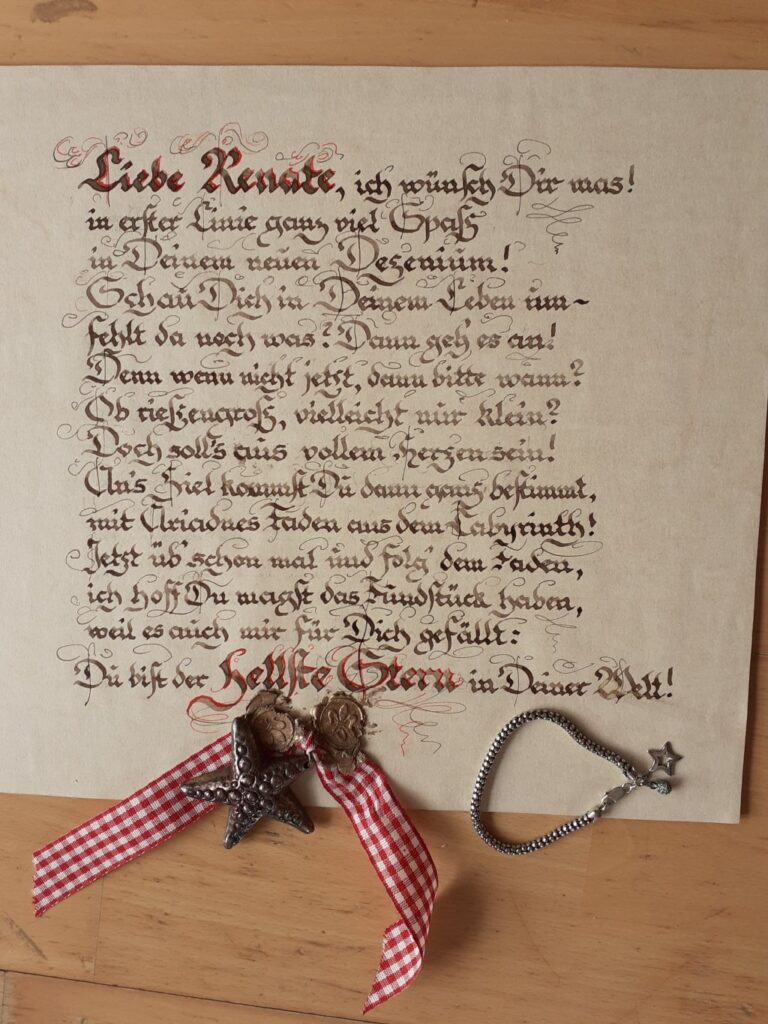 Liebe Renate, ich wünsch Dir was!
in erster Linie ganz viel Spaß
in Deinem neuen Dezenium!
Schau Dich in Deinem Leben um~
fehlt da noch was? Dann geh es an!
Denn wenn nicht jetzt, dann bitte wann?
Ob rießengroß, vielleicht nur klein?
Doch soll's aus vollem Herzen sein!
An's Ziel kommst Du dann ganz bestimmt,
mit Ariadnes Faden aus dem Labyrinth!
Jetzt üb' schon mal und folg' dem Faden,
ich hoff Du magst das Fundstück haben,
weil es auch mir für Dich gefällt:
Du bist der Hellste Stern in Deiner Welt!